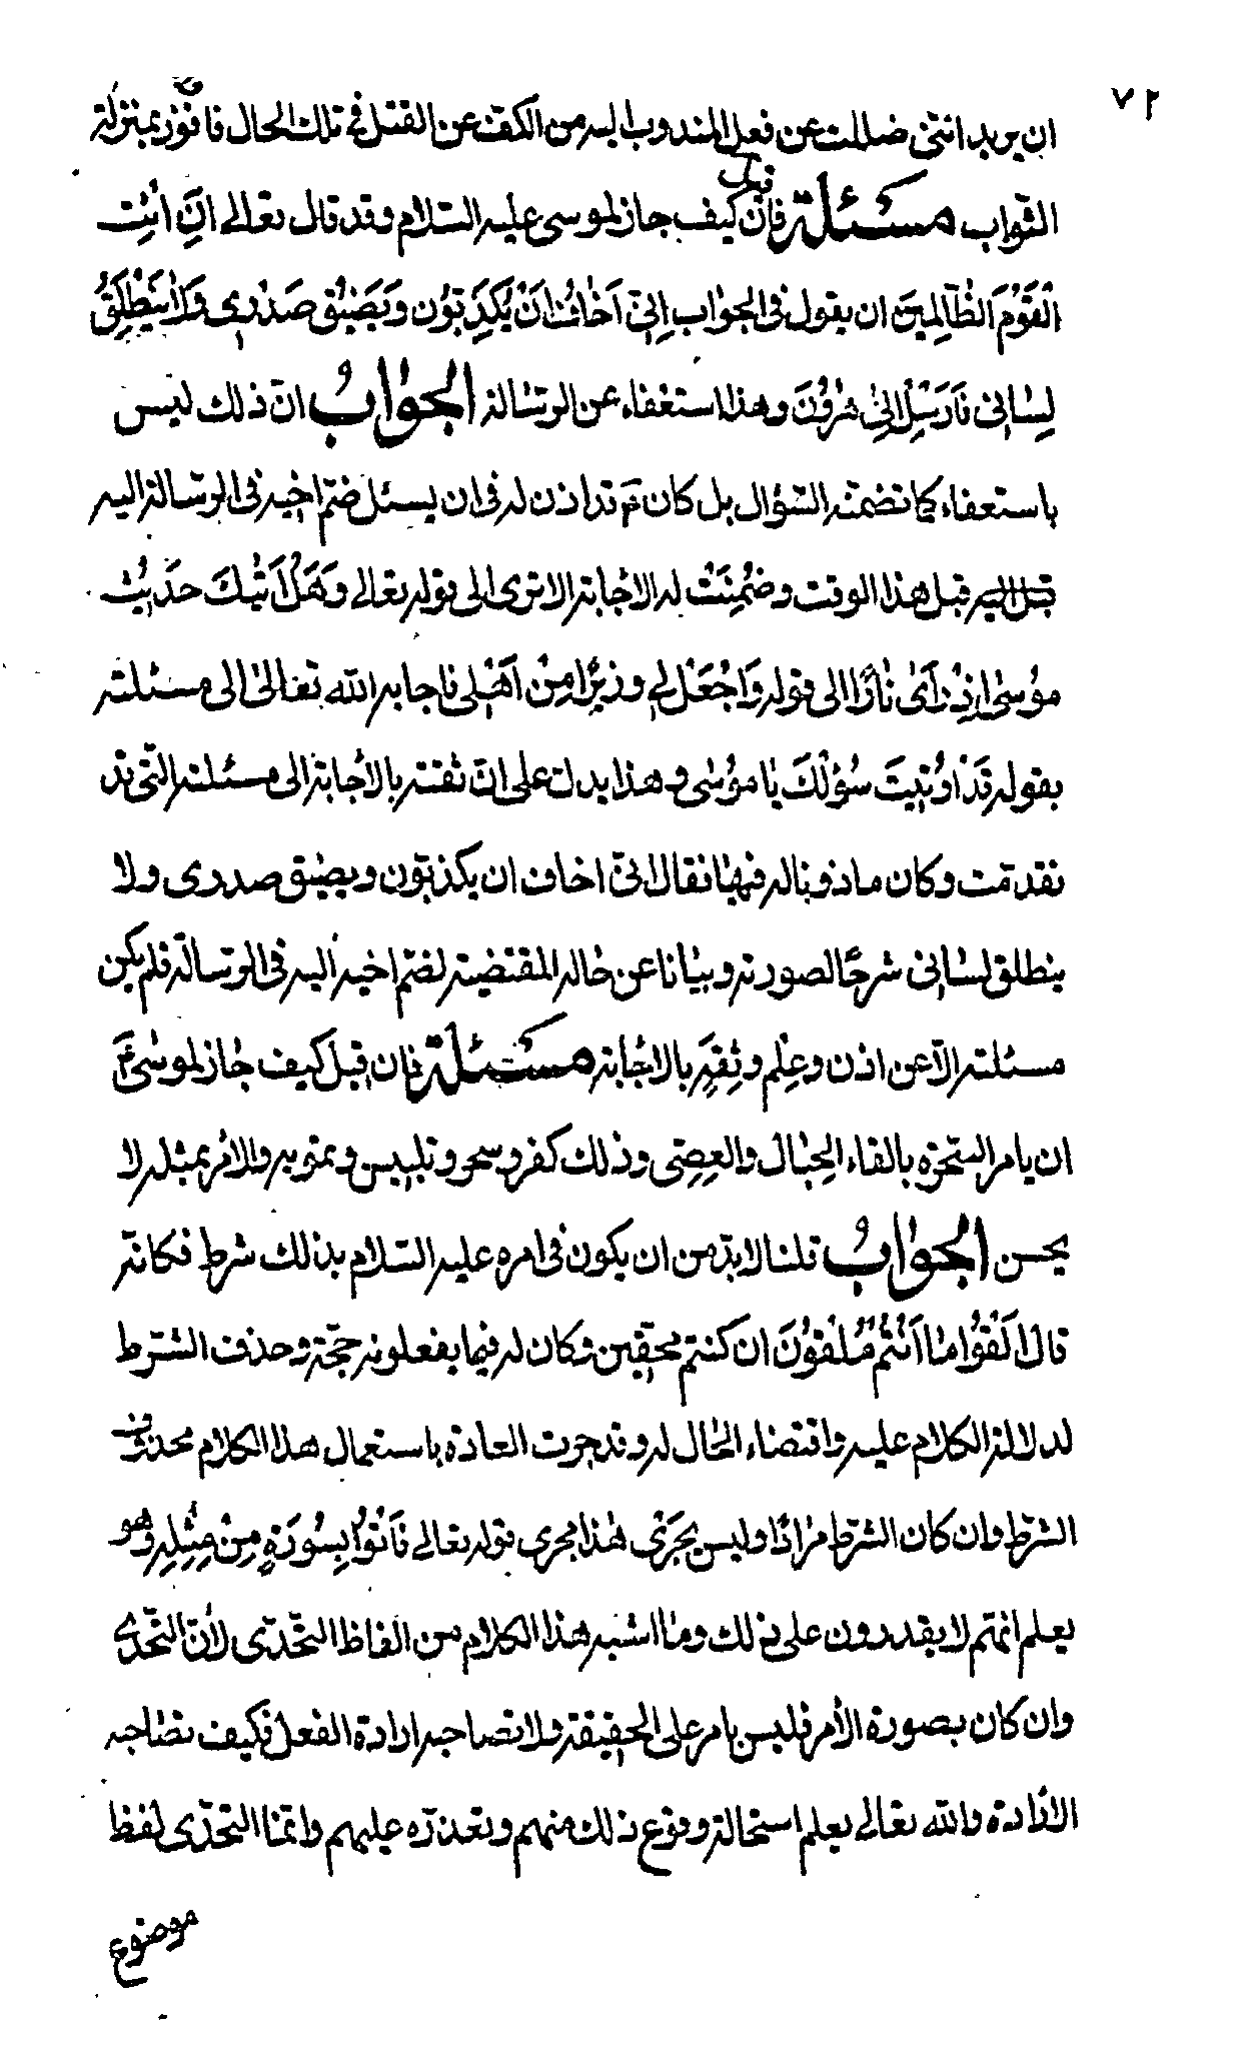 ٧٢
ان يريد انتى ضللت عن فعل المندوب اليه من الكف عن القتل فى تلك الحال فافوز بمنزلة
الثواب مسئلة فان قيل كيف جاز لموسى عليه السلام وقد قال تعالى اَنِ ائْتِ
الْقَوْمَ الظّالِمينَ ان يقول فى الجواب اِنّى اَخافُ اَنْ يُكَذِّبُون وَيَضيقُ صَدْرى وَلا يَنْطَلِقُ
لِسانى فَاَرْسِلْ اِلى هرُونَ وهذا استعفاء عن الرسالة الجوابُ انّ ذلك ليس
باستعفاء كما تضمنه السّؤال بل كان ع قد اذن له فى ان يسئل ضمّ اخيه فى الرسالة اليه
قبل هذا الوقت وضُمِنَتْ له الاجابة الا ترى الى قوله تعالى وَهَلْ اَتيكَ حَديثُ
مُوسى اِذْ رَآى نارًا الى قوله وَاجْعَلْ لى وَزيرًا مِنْ اَهْلى فاجابه الله تعالى الى مسئلته
بقوله قَدْ اُوتيتَ سُؤْلَكَ يا مُوسى وهذا يدل على انّ ثقته بالاجابة الى مسئلته التى قد
تقدمت وكان ماذونا له فيها فقال انّى اخاف ان يكذبون ويضيق صدرى ولا
ينطلق لسانى شرحًا لصورته وبيانا عن حاله المقتضية لضم اخيه اليه فى الرسالة فلم يكن
مسئلته الا عن اذن وعِلم وثِقَةٍ بالاجابة مسئلة فان قيل كيف جاز لموسى ع
ان يامر السّحرة بالقاء الحِبال والعِصِى وذلك كفر وسحر وتلبيس وتمويه والامر بمثله لا
يحسن الجوابُ قلنا لا بدّ من ان يكون فى امره عليه السّلام بذلك شرط فكانّه
قالَ اَلْقُوا ما اَنْتُمْ مُلْقُونَ ان كنتم محقّين وكان له فيما يفعلونه حجّة وحذف الشّرط
لدلالة الكلام عليه واقتضاء الحال له وقد جرت العادة باستعمال هذا الكلام محذوف
الشرط وان كان الشرط مرادًا وليس يَجرى هذا مجرى قوله تعالى فَاْتُوا بِسُورَةٍ مِنْ مِثْلِهِ وهو
يعلم انهم لا يقدرون على ذلك وما اشبه هذا الكلام من الفاظ التّحدّى لانّ التحدّى
وان كان بصورة الأمر فليس بامر على الحقيقة ولا تصاحبه ارادة الفعل فكيف تصاحبه
الارادة والله تعالى يعلم استحالة وقوع ذلك منهم وتعذره عليهم وانّما التحدّى لفظ
موضوع